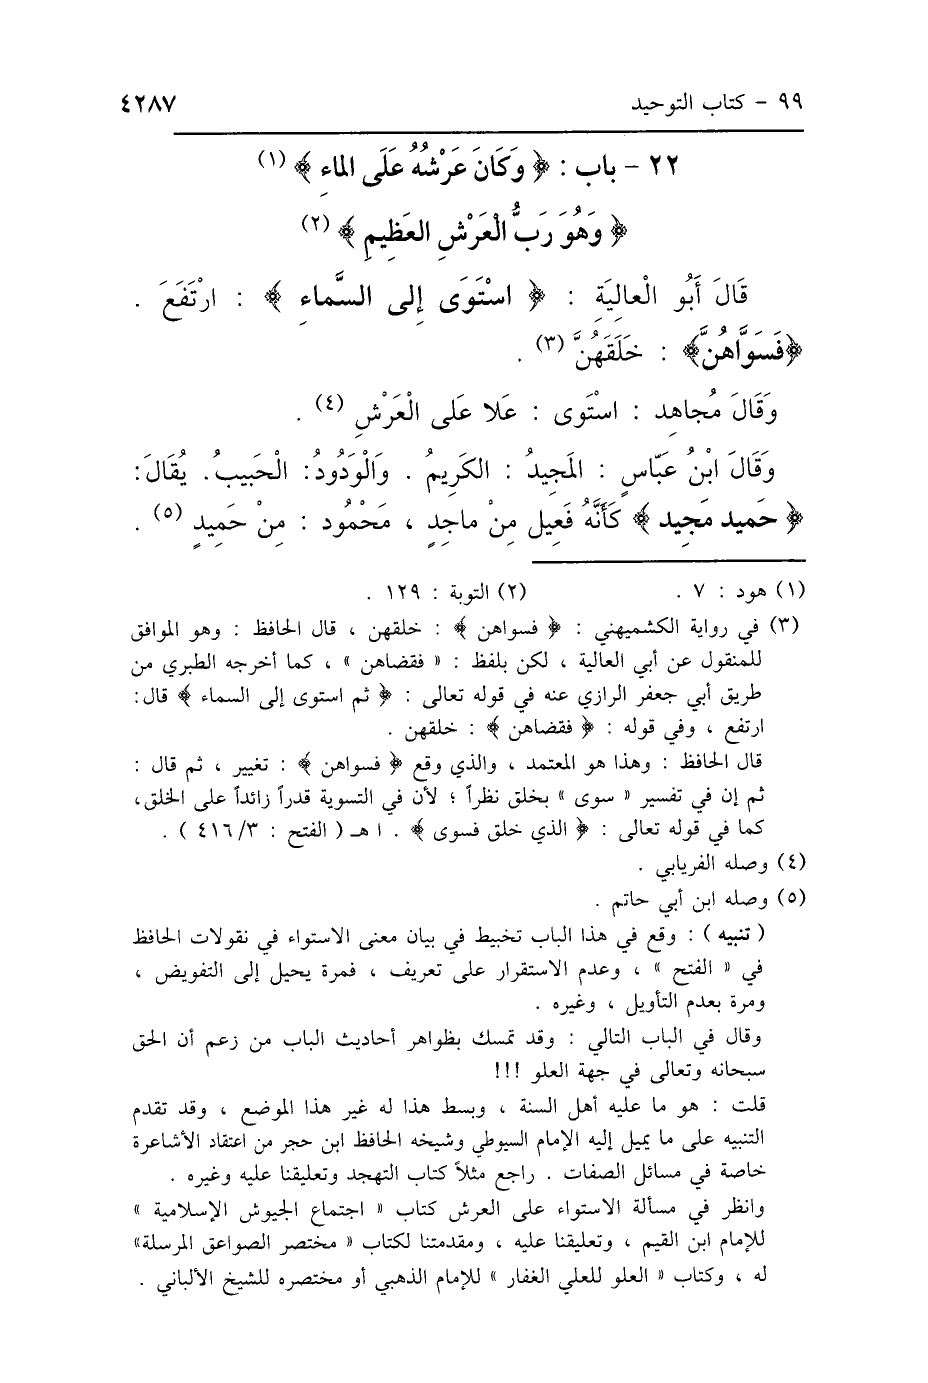 ٩٩ - كتاب التوحيد ٤٢٨٧
٢٢ - باب : ﴿ وَكَانَ عَرْشُهُ عَلَى الماءِ ﴾ (١)
﴿ وَهُوَ رَبُّ الْعَرْشِ العَظِيمِ ﴾ (٢)
قَالَ أَبُو الْعالِيَةِ : ﴿ اسْتَوَى إلى السَّماءِ ﴾ : ارْتَفَعَ .
﴿فَسَوَّاهُنَّ﴾ : خَلَقَهُنَّ (٣) .
وَقَالَ مُجاهِد : اسْتَوى : عَلا عَلى الْعَرْشِ (٤) .
وَقَالَ ابْنُ عَبّاسٍ : المَجِيدُ : الكَرِيمُ . وَالْوَدُودُ: الْحَبِيبُ. يُقَالَ:
﴿ حَميد مَجِيد ﴾ كَأَنَّهُ فَعِيل مِنْ ماجِدٍ ، مَحْمُود : مِنْ حَمِيدٍ (٥) .
(١) هود : ٧ . (٢) التوبة : ١٢٩ .
(٣) في رواية الكشميهني : ﴿ فسواهن ﴾ : خلقهن ، قال الحافظ : وهو الموافق
للمنقول عن أبي العالية ، لكن بلفظ : « فقضاهن » ، كما أخرجه الطبري من
طريق أبي جعفر الرازي عنه في قوله تعالى : ﴿ ثم استوى إلى السماء ﴾ قال:
ارتفع ، وفي قوله : ﴿ فقضاهن ﴾ : خلقهن .
قال الحافظ : وهذا هو المعتمد ، والذي وقع ﴿ فسواهن ﴾ : تغيير ، ثم قال :
ثم إن في تفسير « سوى » بخلق نظراً ؛ لأن في التسوية قدراً زائداً على الخلق،
كما في قوله تعالى : ﴿ الذي خلق فسوى ﴾ . ا هـ ( الفتح : ٤١٦/٣ ) .
(٤) وصله الفريابي .
(٥) وصله ابن أبي حاتم .
( تنبيه ) : وقع في هذا الباب تخبيط في بيان معنى الاستواء في نقولات الحافظ
في « الفتح » ، وعدم الاستقرار على تعريف ، فمرة يحيل إلى التفويض ،
ومرة بعدم التأويل ، وغيره .
وقال في الباب التالي : وقد تمسك بظواهر أحاديث الباب من زعم أن الحق
سبحانه وتعالى في جهة العلو !!!
قلت : هو ما عليه أهل السنة ، وبسط هذا له غير هذا الموضع ، وقد تقدم
التنبيه على ما يميل إليه الإمام السيوطي وشيخه الحافظ ابن حجر من اعتقاد الأشاعرة
خاصة في مسائل الصفات . راجع مثلاً كتاب التهجد وتعليقنا عليه وغيره .
وانظر في مسألة الاستواء على العرش كتاب « اجتماع الجيوش الإسلامية »
للإمام ابن القيم ، وتعليقنا عليه ، ومقدمتنا لكتاب « مختصر الصواعق المرسلة»
له ، وكتاب « العلو للعلي الغفار » للإمام الذهبي أو مختصره للشيخ الألباني .